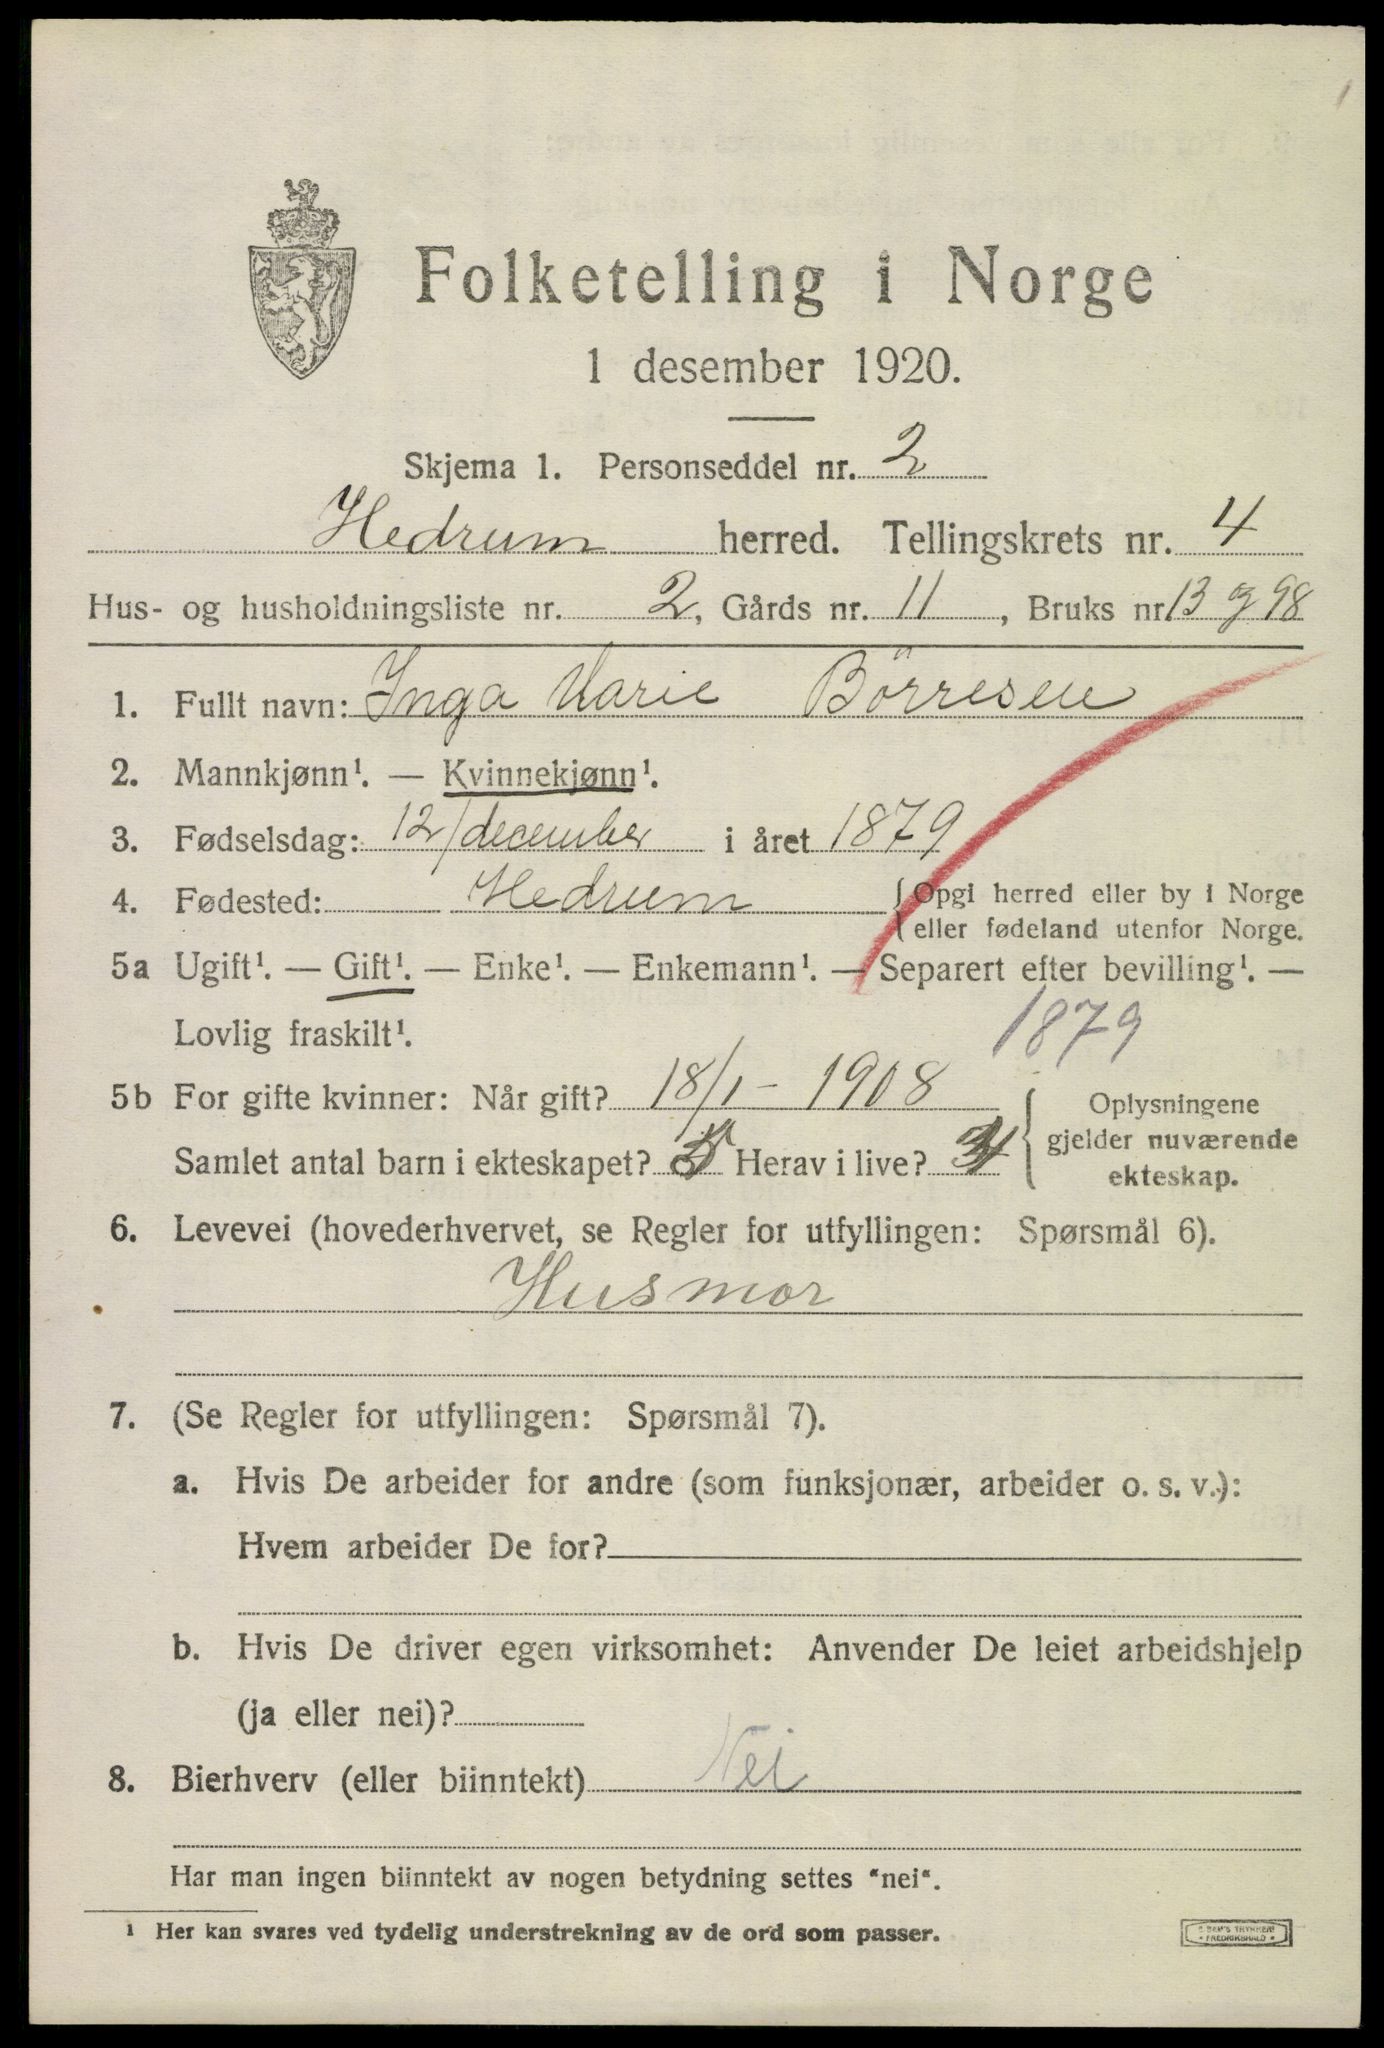 Folketelling i Norge
1 desember 1920.
Skjema 1. Personseddel nr. 2
Hedrum herred. Tellingskrets nr. 4
Hus- og husholdningsliste nr. 2, Gårds nr. 11, Bruks nr 13 og 98
1. Fullt navn: Inga Marie Börresen
2. Mannkjønn¹. — Kvinnekjønn¹.
3. Fødselsdag: 12/december i året 1879
4. Fødested: Hedrum {Opgi herred eller by i Norge
eller fødeland utenfor Norge.
5a Ugift¹. — Gift¹. — Enke¹. — Enkemann¹. — Separert efter bevilling¹. —
Lovlig fraskilt¹. 1879
5b For gifte kvinner: Når gift? 18/1 - 1908
Samlet antal barn i ekteskapet? 5 Herav i live? 4
Oplysningene
gjelder nuværende
ekteskap.
6. Levevei (hovederhvervet, se Regler for utfyllingen: Spørsmål 6).
Husmor
7. (Se Regler for utfyllingen: Spørsmål 7).
a. Hvis De arbeider for andre (som funksjonær, arbeider o. s. v.):
Hvem arbeider De for?
b. Hvis De driver egen virksomhet: Anvender De leiet arbeidshjelp
(ja eller nei)?
8. Bierhverv (eller biinntekt) Nei
Har man ingen biinntekt av nogen betydning settes "nei".
¹ Her kan svares ved tydelig understrekning av de ord som passer.
FREDRIKSHALD